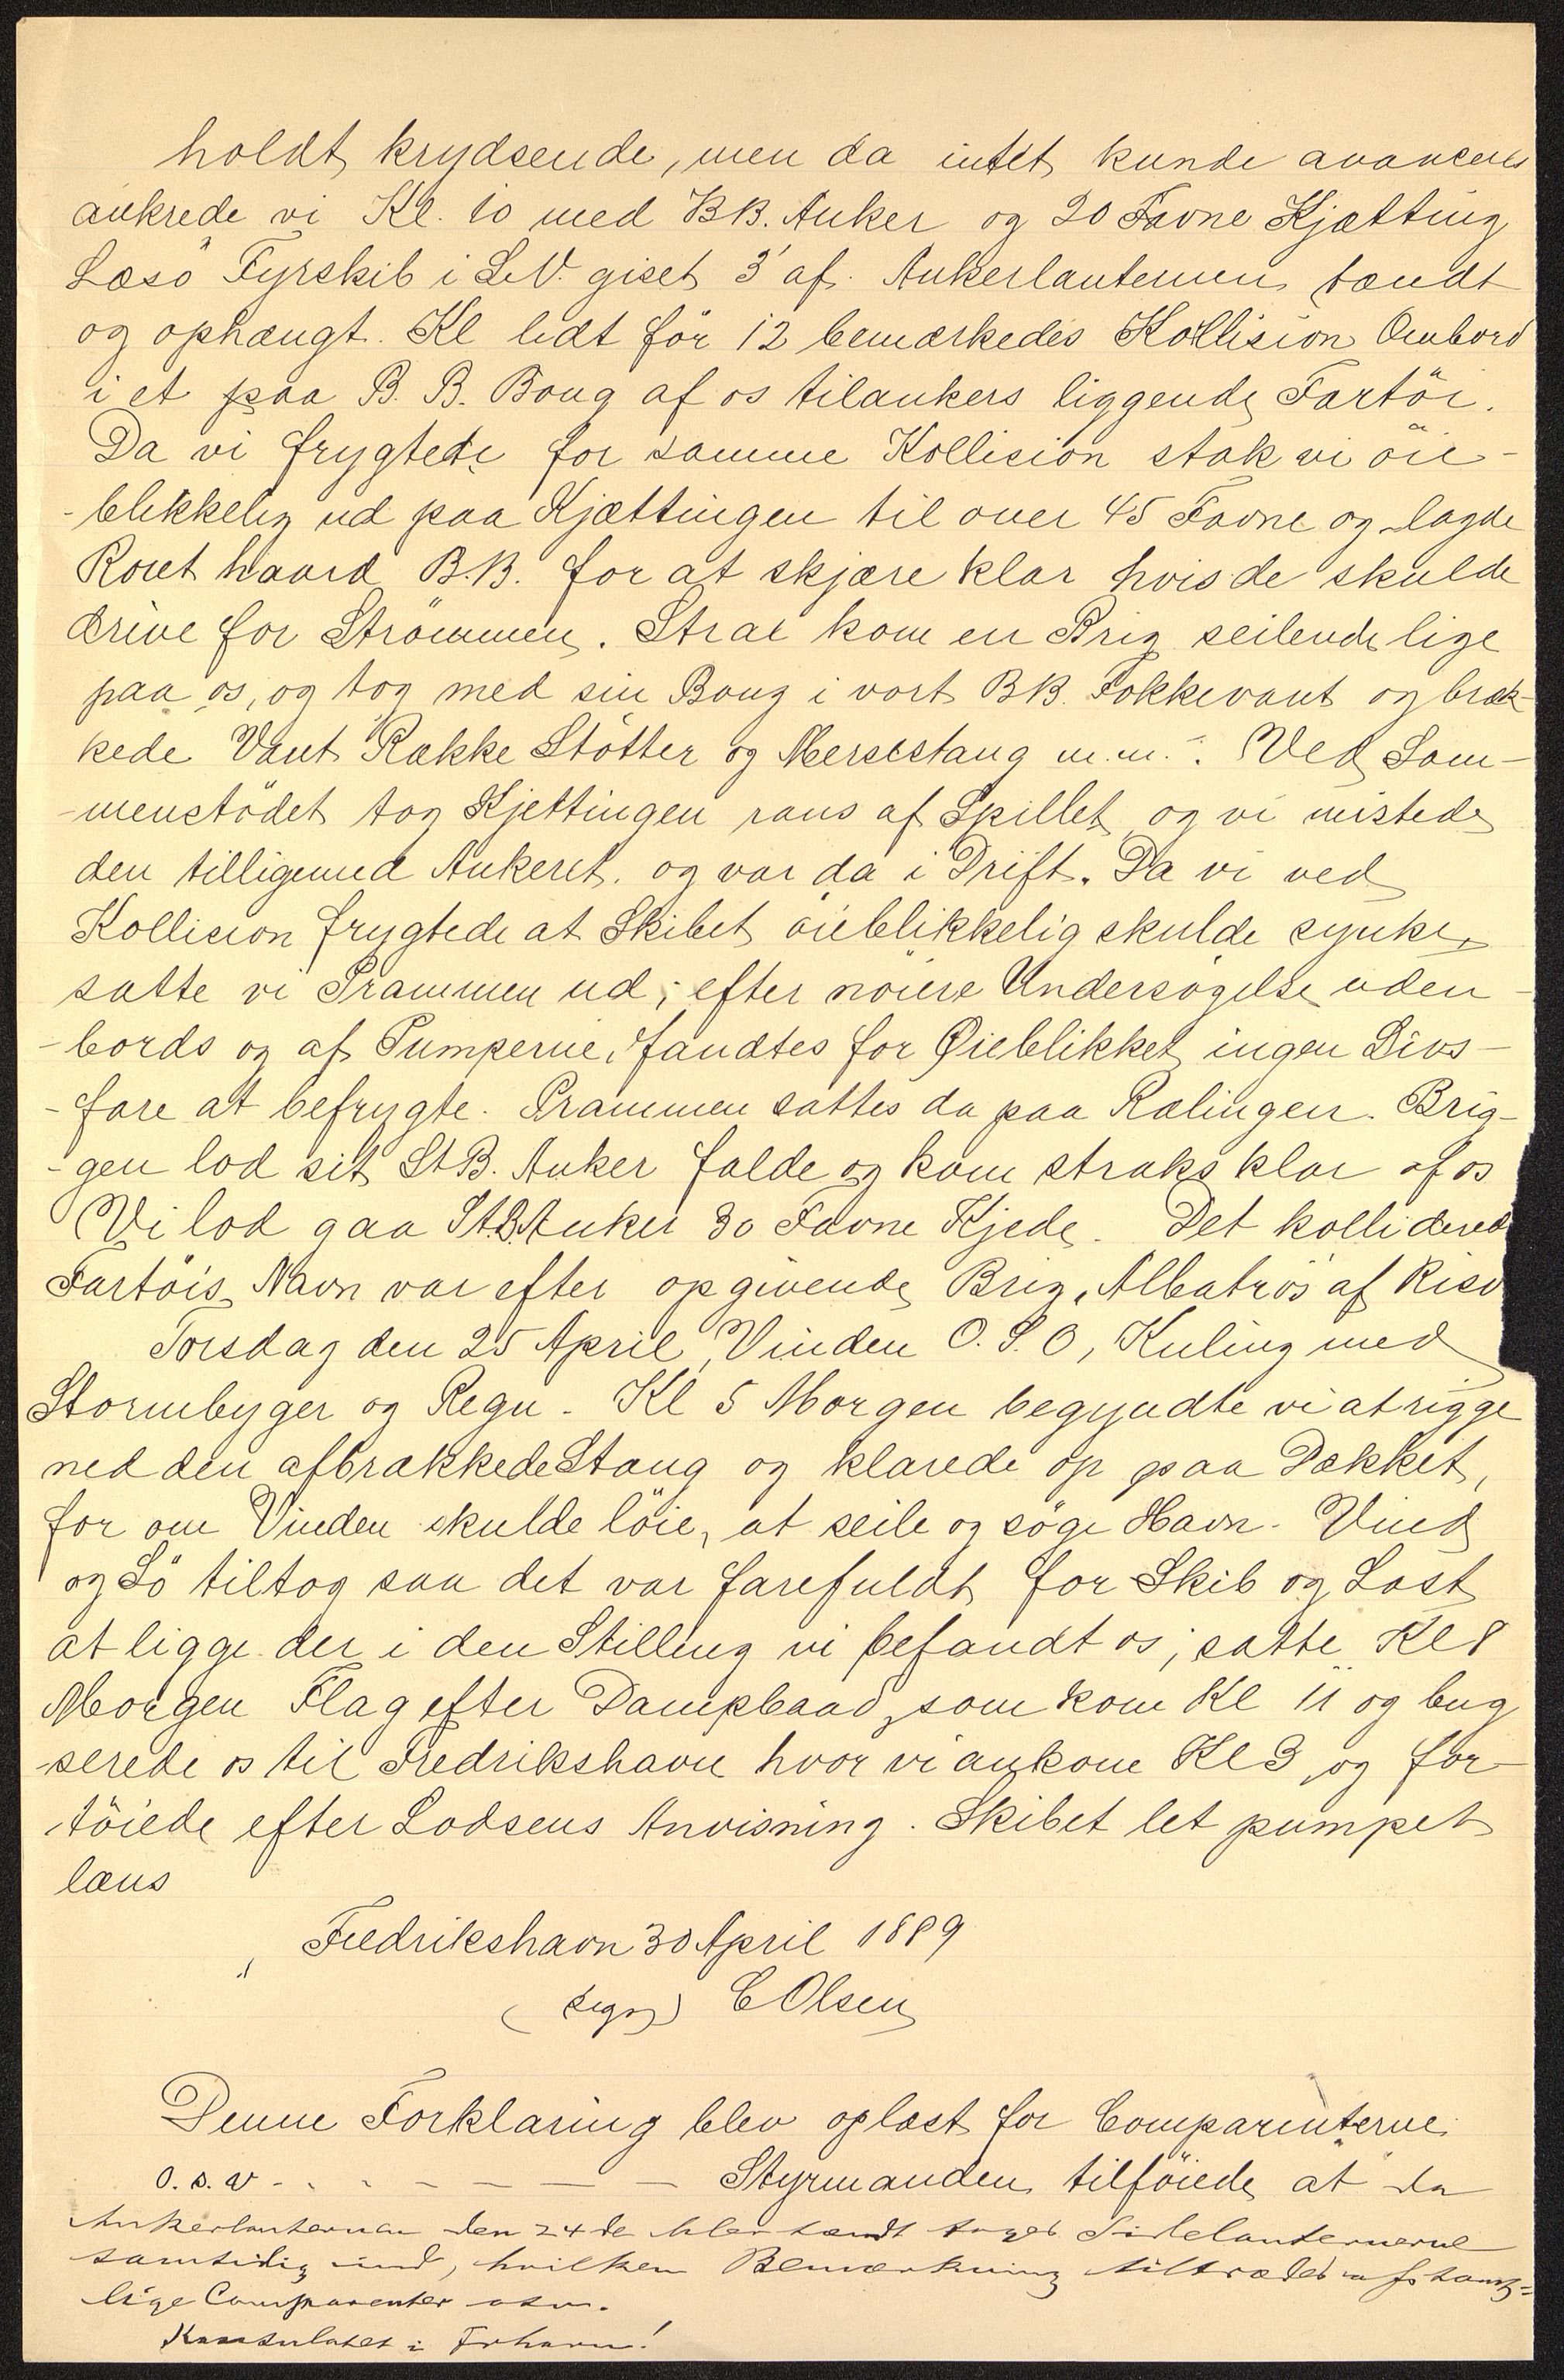 holdt krydsende, men da intet kunde avanceres
ankrede vi Kl. 10 med BB. Anker og 20 Favne Kjætting
Læsö Fyrskib i S.V. giset 3' af. Ankerlanternen tændt
og ophængt. Kl lidt för 12 bemærkedes Kollision Ombord
i et paa B. B. Boug af os tilankers liggende Fartöi.
Da vi frygtede for samme Kollision stak vi öie-
-blikkelig ud paa Kjættingen til over 45 Favne og lagde
Roret haard B.B. for at skjære klar hvis de skulde
drive for Strömmen. Strax kom en Brig seilende lige
paa os, og tog med sin Boug i vort BB. Fokkevant og bræk-
kede Vant Række Stötter og Mersestang m.m. Ved Sam-
-menstödet tog Kjettingen rans af Spillet og vi mistede
den tilligemed Ankeret. og var da i Drift. Da vi ved
Kollision frygtede at Skibet öieblikkelig skulde synke,
satte vi Prammen ud; efter nöiere Undersögelse uden-
-bords og af Pumperne, fandtes for Øieblikket ingen Livs-
-fare at befrygte. Prammen sattes da paa Rælingen. Brig-
-gen lod sit StB. Anker falde og kom straks klar af os
Vi lod gaa St.B. Anker 30 Favne Kjede. Det kolliderede
Fartöis Navn var efter opgivende Brig "Albatros" af
Torsdag den 25 April, Vinden O.S.O, Kuling med
Stormbyger og Regn. Kl 5 Morgen begyndte vi at rigge
ned den afbrækkede Stang og klarede op paa Dækket,
for om Vinden skulde löie, at seile og söge Havn. Vind
og Sö tiltog saa det var farefuldt for Skib og Last
at ligge der i den Stilling vi befandt os; satte Kl 8
Morgen Flag efter Dampbaad, som kom Kl 11 og bug
-serede os til Fredrikshavn hvor vi ankom Kl 3, og for-
töiede efter Lodsens Anvisning. Skibet let pumpet
læns
Fredrikshavn 30 April 1889
(sign) C Olsen
Denne Forklaring blev oplæst for Comparenterne
o.s.v - - - - - - Styrmanden tilföiede at da
Ankerlanternen den 24de blev tændt toges Sidelanternerne
samtidig ind, hvilken Bemærkning tiltrædes af samt=
lige Comparenter osv.
Konsulatet i Frhavn!